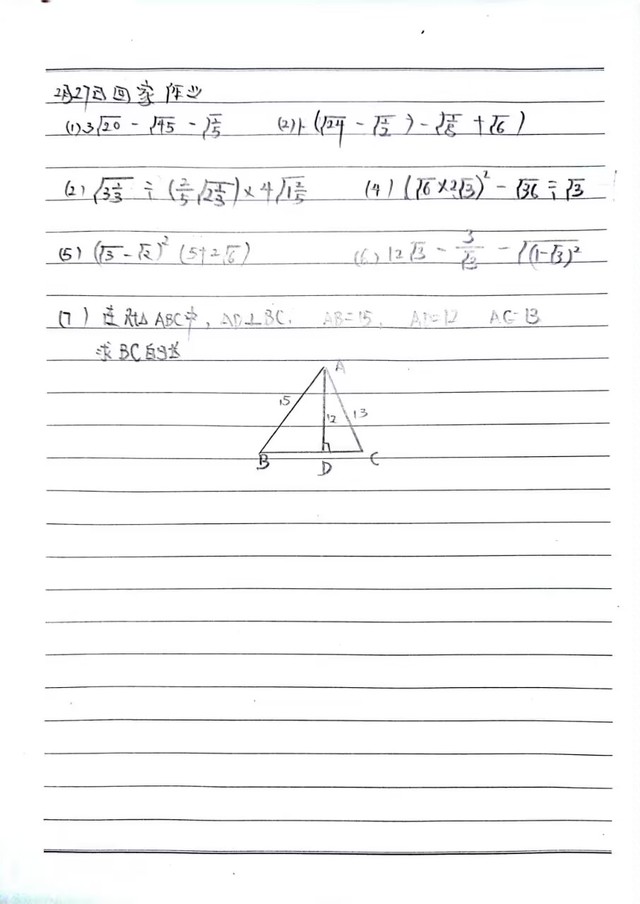 2月27日回家作业
(1) 3√20 - √45 - √(2/5) (2) (√24 - √(1/2)) - √(1/8) + √6)
(2) √(3 1/3) ÷ (2/5 √(2 1/3)) × 4√(1 2/5) (4) (√6 × 2√3)² - √36 ÷ √3
(5) (√3 - √2)² (5+2√6) (6) 12√3 - 3/√3 - √(1-√3)²
(7) 在Rt△ABC中, AD⊥BC, AB=15, AD=12 AC=13
求BC的长
A
15 12 13
B D C